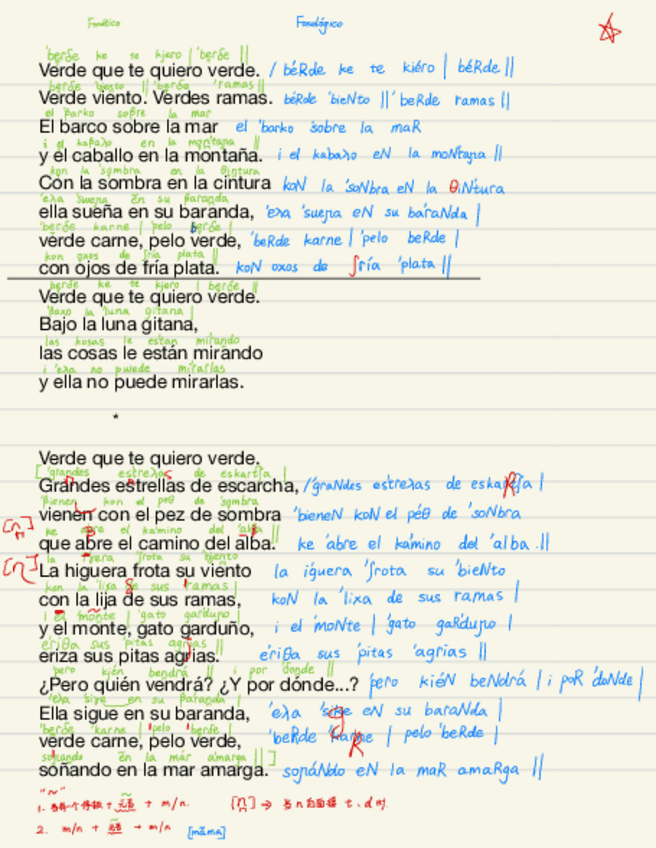 Fonético Fonológico
'berðe ke te kjero | 'berðe ||
Verde que te quiero verde. / béRde ke te kiéro | béRde ||
berðe 'bjento || 'berðe 'ramas ||
Verde viento. Verdes ramas. béRde 'bieNto || 'beRde ramas ||
el barko soβre la mar
El barco sobre la mar el 'barko 'sobre la maR
i el kaβaʎo en la montaɲa
y el caballo en la montaña. i el kabaʎo eN la moNtaɲa ||
kon la 'sombra en la θintura
Con la sombra en la cintura koN la 'soNbra eN la θiNtura
'eʎa 'sueɲa en su baranda
ella sueña en su baranda, 'eʎa 'sueɲa eN su báraNda |
'berðe karne | 'pelo berðe |
verde carne, pelo verde, 'beRde karne | 'pelo beRde |
kon oxos de fría plata ||
con ojos de fría plata. koN oxos de ʃría 'plata ||
berðe ke te kjero | berðe ||
Verde que te quiero verde.
'baxo la luna gitana |
Bajo la luna gitana,
las kosas le estan mirando
las cosas le están mirando
i 'eʎa no pwede mirarlas
y ella no puede mirarlas.
*
Verde que te quiero verde.
['grandes estreʎas de eskartʃa |
Grandes estrellas de escarcha, /'graNdes estreʎas de eskaRtʃa |
'bienen kon el peθ de sombra
vienen con el pez de sombra 'bieneN koN el péθ de 'soNbra
[n̪] ke aβre el kamino del 'alba
que abre el camino del alba. ke 'abre el ká'mino del 'alba ||
[n̪] la frota su 'bjento
La higuera frota su viento la iguera 'ʃrota su 'bieNto
kon la 'lixa de sus ramas |
con la lija de sus ramas, koN la 'lixa de sus ramas |
i el monte | 'gato garduɲo |
y el monte, gato garduño, i el 'moNte | 'gato gaRduɲo |
eriθa sus pitas agrias ||
eriza sus pitas agrias. e'riθa sus 'pitas 'agrias ||
pero kjén bendrá || i por 'donde ||
¿Pero quién vendrá? ¿Y por dónde...? pero kiéN beNdrá | i poR 'doNde |
'eʎa siɣe en su baranda |
Ella sigue en su baranda, 'eʎa 'sige eN su baraNda | g
'berðe 'karne | 'pelo 'berðe |
verde carne, pelo verde, 'beRde 'karne | pelo 'beRde | R
soɲando en la mar amarga ||]
soñando en la mar amarga. soɲáNdo eN la maR amaRga ||
"~"
1. + 元音 + m/n. [n̪] → 当n后面接 t、d 时.
2. m/n + 元音 → m/n [mãma]